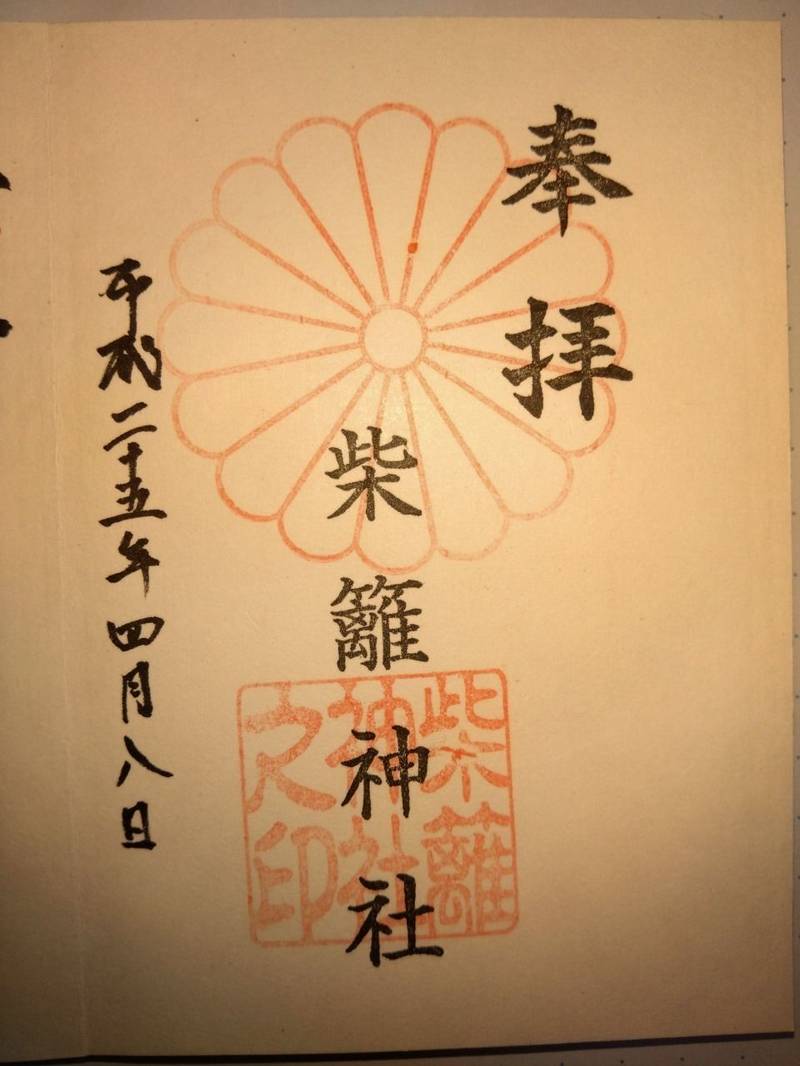 奉拝
柴籬神社
柴籬
神社
之印
平成二十五年四月八日